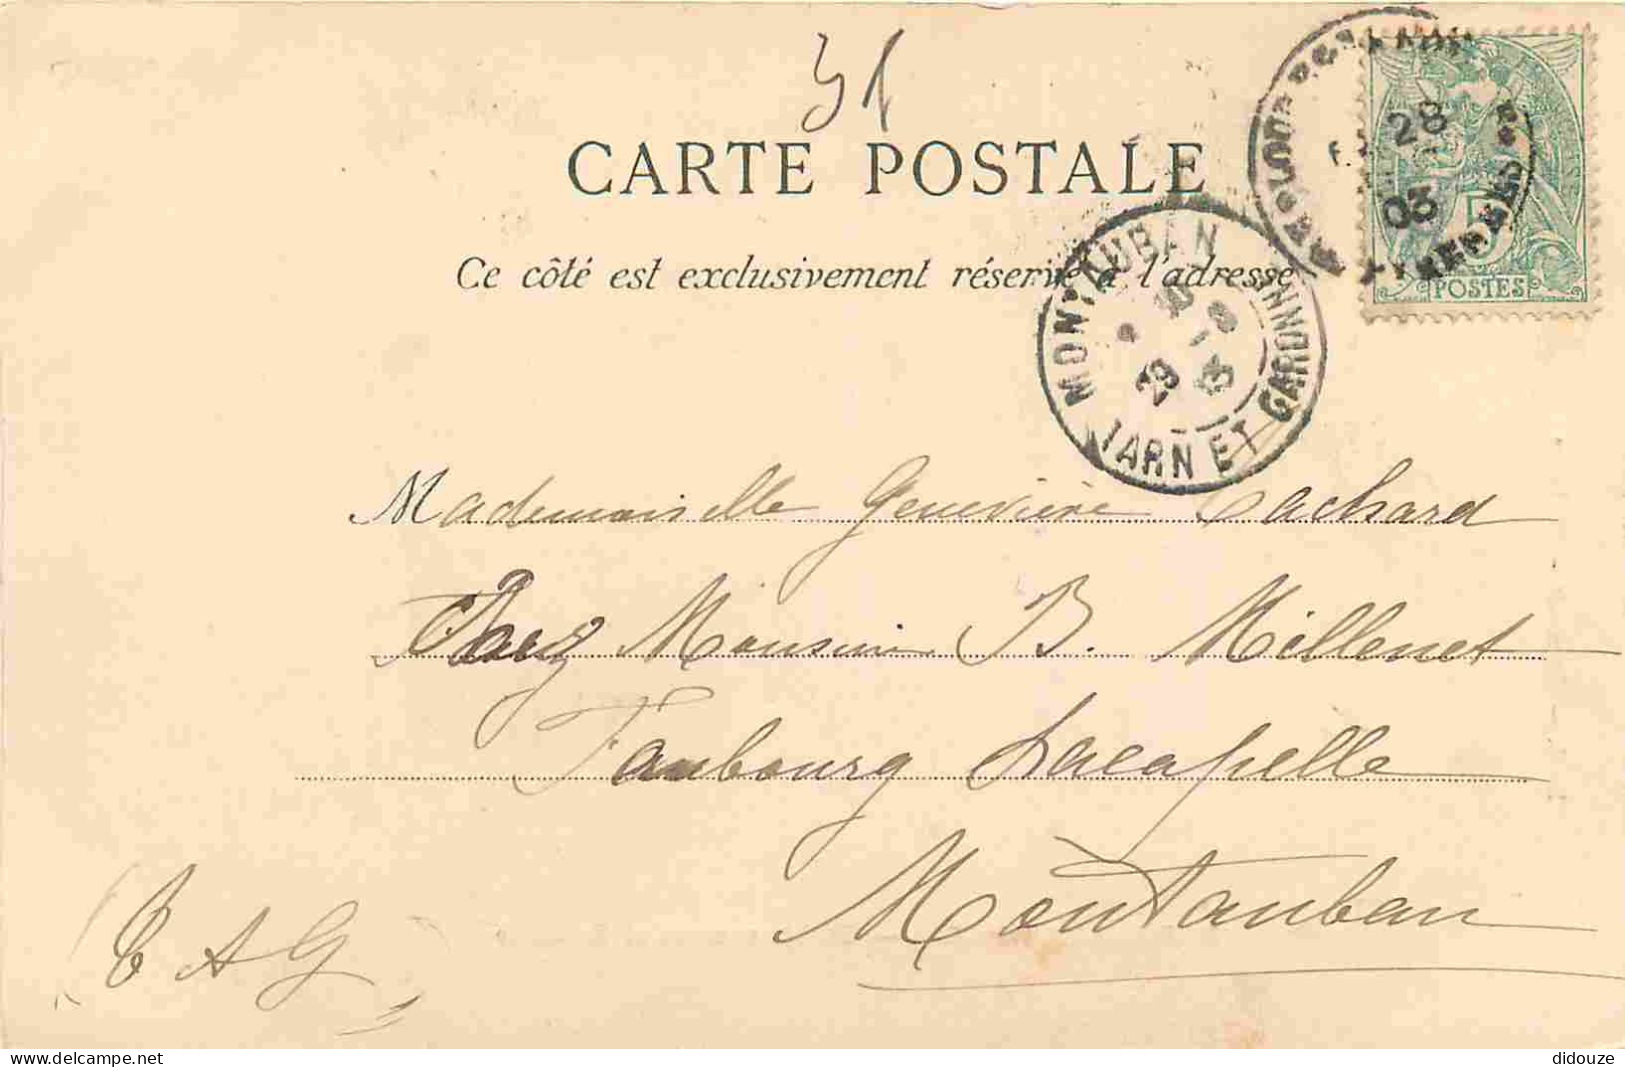 31
CARTE POSTALE
Ce côté est exclusivement réservé à l'adresse
28
03
POSTES
MONTAUBAN
29
TARN ET GARONNE
Mademoiselle Geneviève Cachard
Chez Monsieur B. Millenet
Faubourg Lacapelle
Montauban
didouze